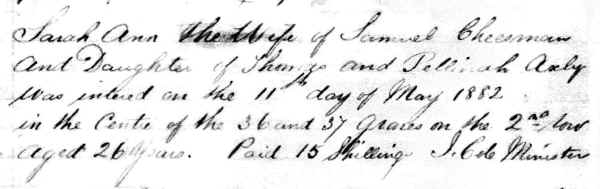 Sarah Ann the Wife of Samuel Cheesman
And Daughter of Thomas and Pellinah Axby
was intered on the 11th day of May 1882
in the Centre of the 36 and 37 Graves on the 2nd row
aged 26 Years. Paid 15 Shillings J. Cole Minister